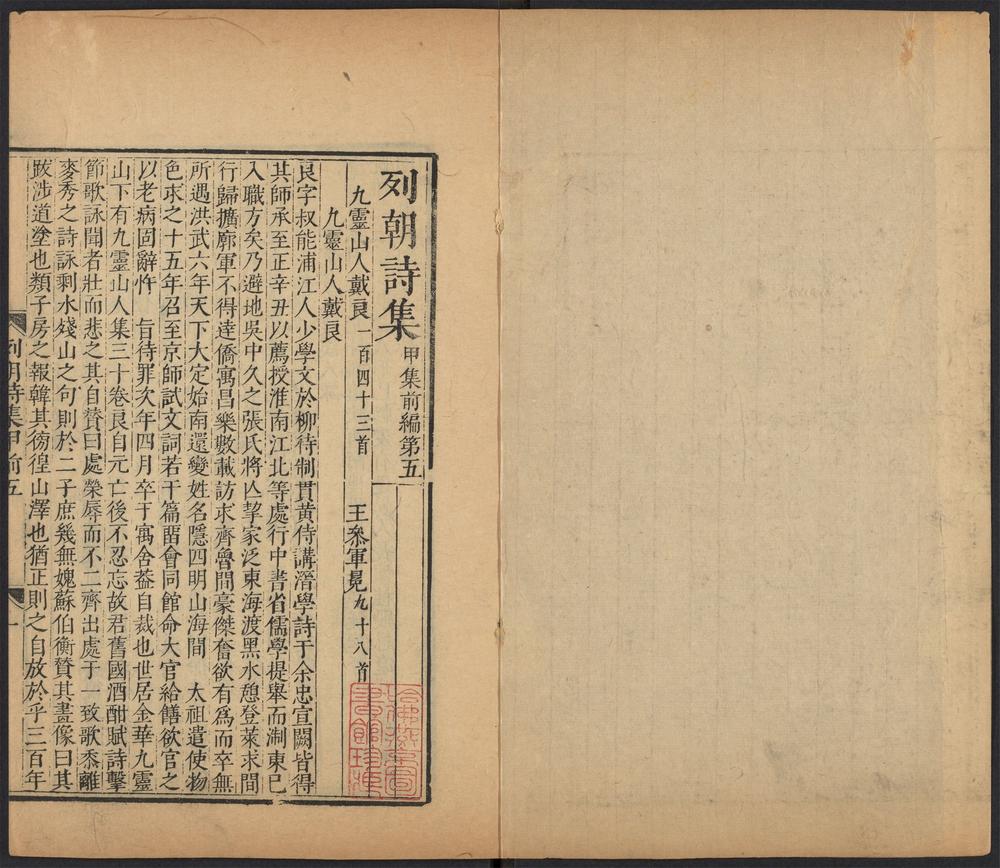 列朝詩集 甲集前編第五
九靈山人戴良一百四十三首 王叅軍晃九十八首
九靈山人戴良
良字叔能浦江人少學文於柳待制貫黄侍講溍學詩于余忠宣闕皆得
其師承至正辛丑以薦授淮南江北等處行中書省儒學提舉而淛東已
入職方矣乃避地吳中久之張氏將亾挈家泛東海渡黑水憩登萊求間
行歸擴廓軍不得達僑寓昌樂數載訪求齊魯間豪傑奮欲有爲而卒無
所遇洪武六年天下大定始南還變姓名隱四明山海間 太祖遣使物
色求之十五年召至京師試文詞若干篇畱會同館命大官給饍欲官之
以老病固辭忤 旨待罪次年四月卒于寓舍葢自裁也世居金華九靈
山下有九靈山人集三十卷良自元亡後不忍忘故君舊國酒酣賦詩擊
節歌詠聞者壯而悲之其自賛曰處榮辱而不二齊出處于一致歌黍離
麥秀之詩詠剩水殘山之句則於二子庶幾無媿蘇伯衡賛其畫像曰其
跋涉道塗也類子房之報韓其徬徨山澤也猶正則之自放於乎三百年
列朝詩集甲前五 一
哈佛燕京圖
書館珍藏